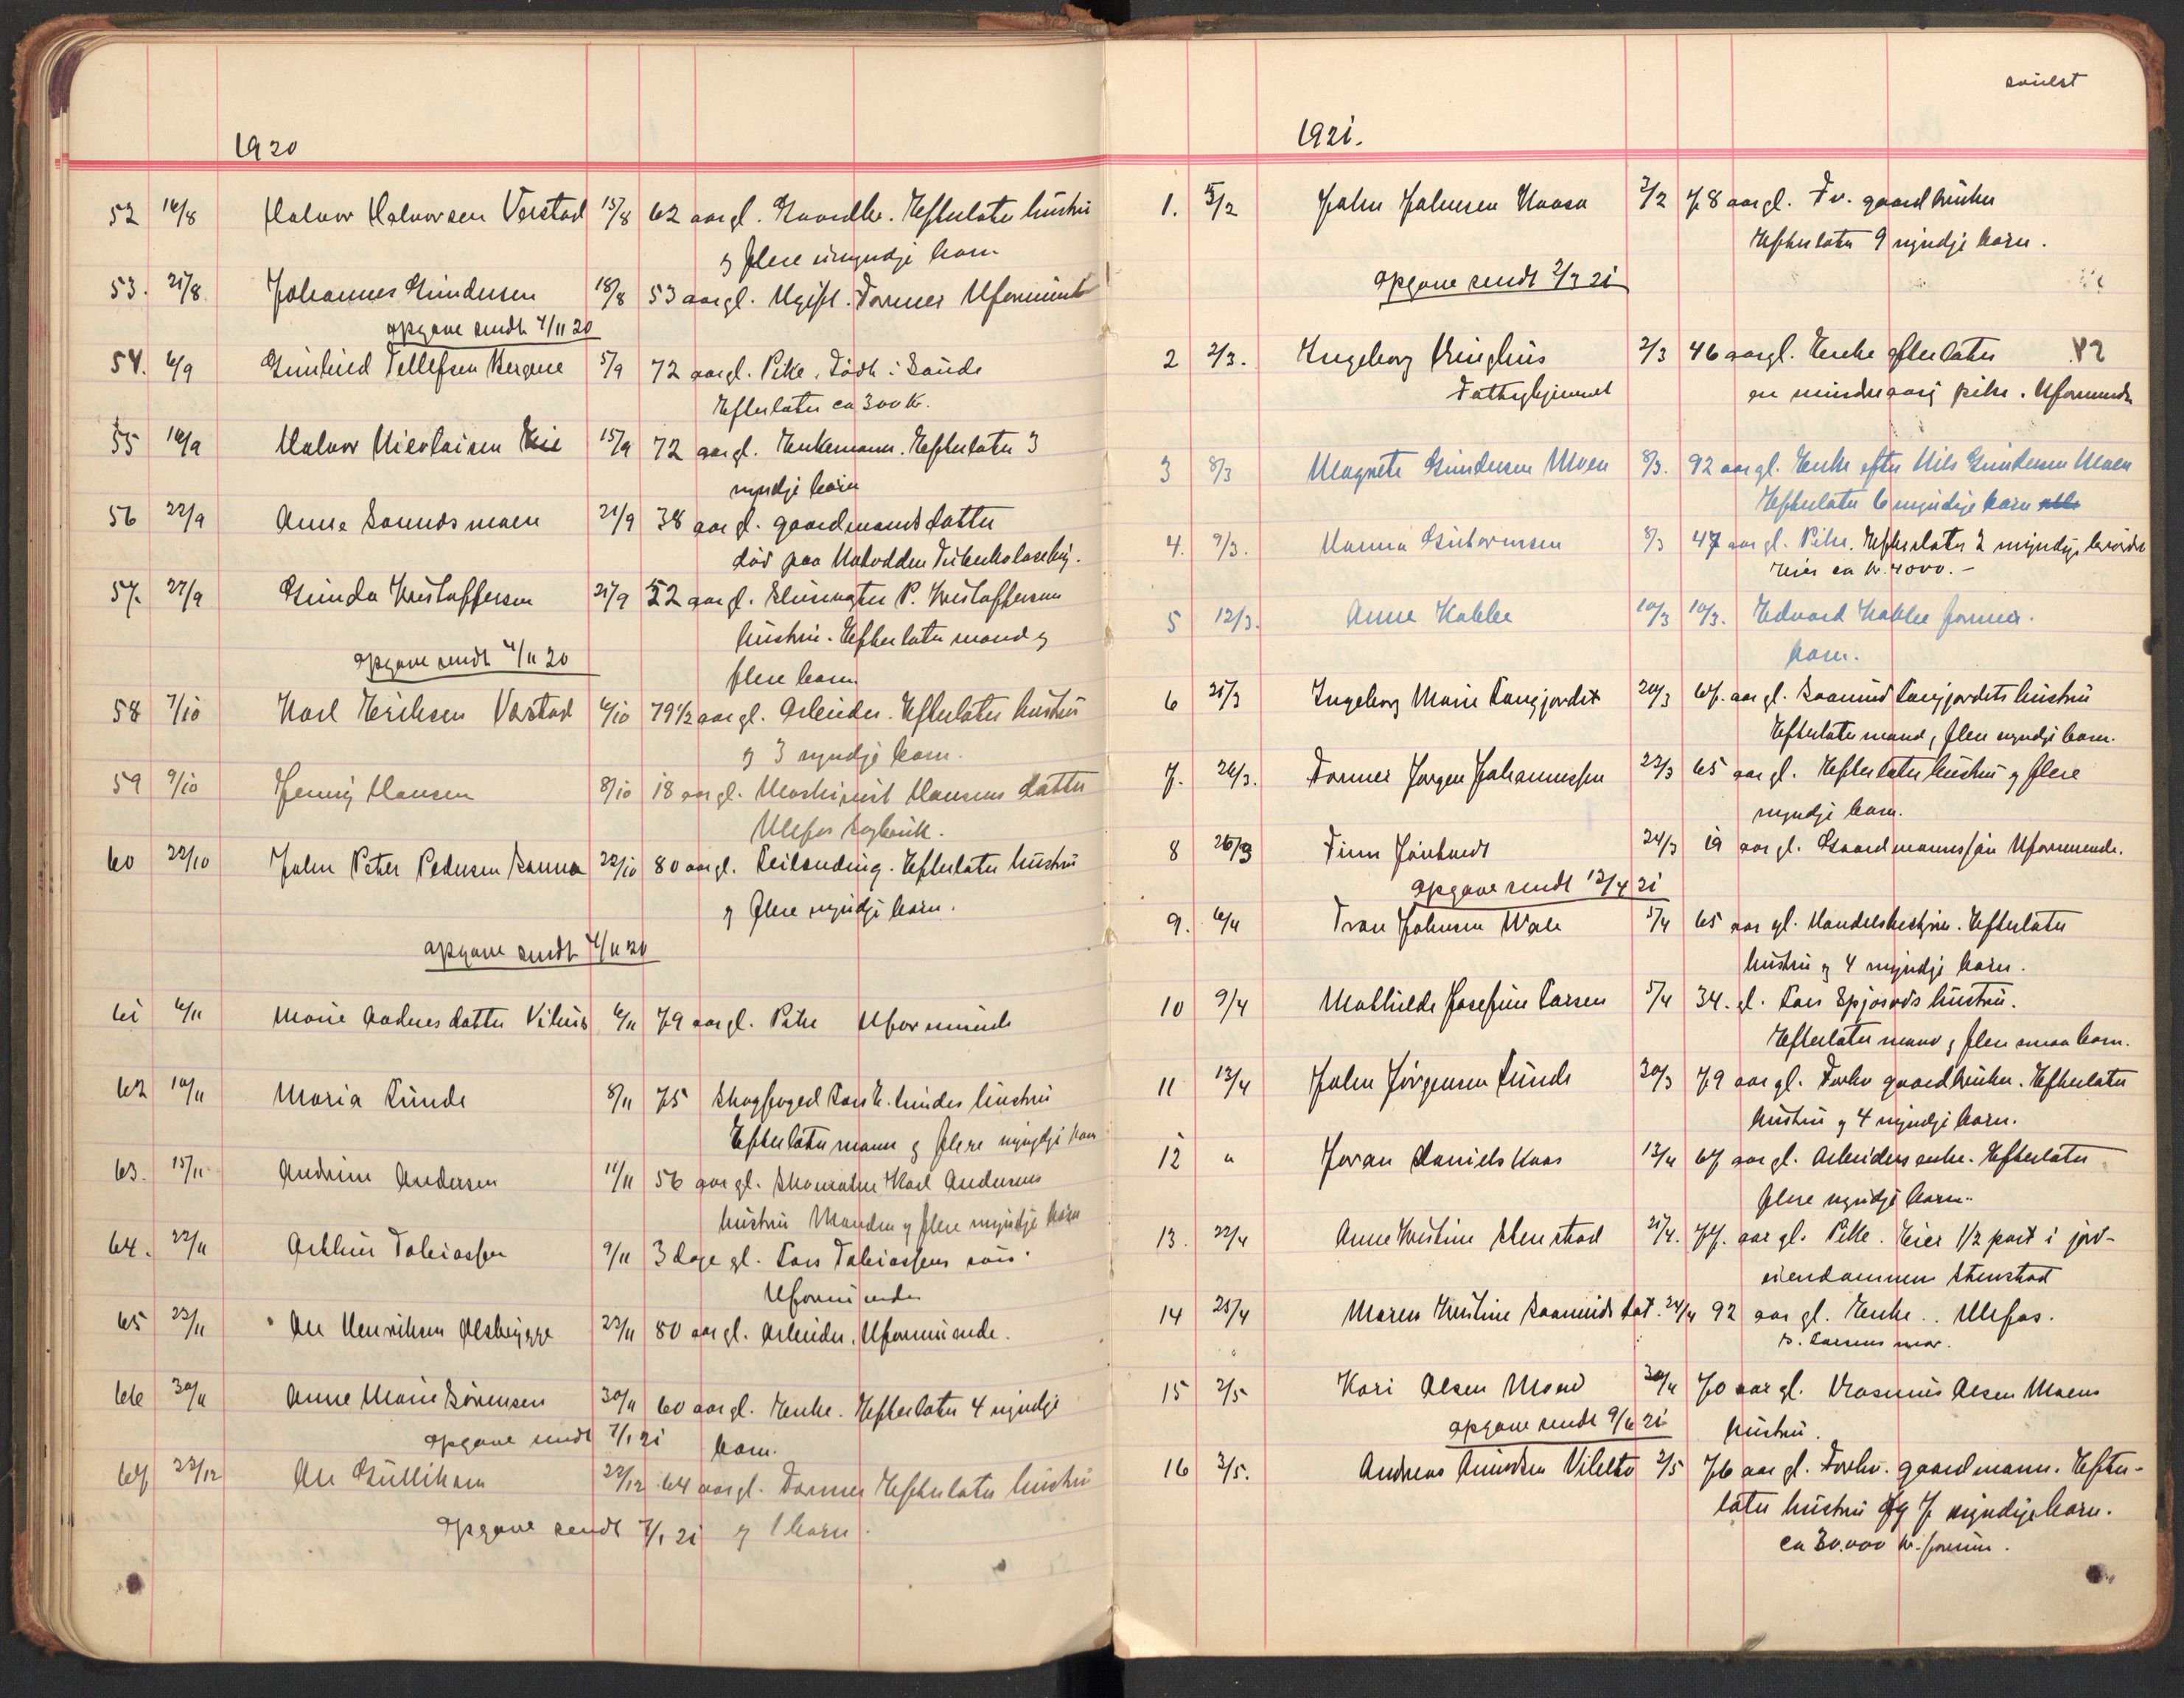 1920
52 16/8 Halvor Halvorsen Verstad 15/8 62 aar gl. Gaardbr. Efterlater hustru
og flere umyndje barn
53. 21/8 Johannes Gundersen 18/8 53 aar gl. Ugift. Former Uformuende
opgave sendt 4/11 20
54. 6/9 Gunhild Tellefsen Bergene 5/9 72 aar gl. Pike. Født i Saude
Efterlater ca 300 kr.
55 16/9 Halvor Nicolaisen 15/9 72 aar gl. Enkemann. Efterlater 3
myndje barn
56 22/9 Anne Saunds moen 21/9 38 aar gl. gaardmands datter
død paa Notodden Tuberkolosehj.
57. 27/9 Gunda Kristoffersen 25/9 52 aar gl. Slusevogter P. Kristoffersens
hustru. Efterlater mand og
opgave sendt 4/11 20
flere barn
58 7/10 Karl Eriksen Verstad 6/10 79 1/2 aar gl. Arbeider. Efterlater hustru
og 3 myndje barn.
59 9/10 Jenny Hansen 8/10 18 aar gl. Maskinist Hansens datter
Ulefos Sagbruk.
60 22/10 John Peter Pedersen Sanna 22/10 80 aar gl. Efterlater hustru
og flere myndje barn.
opgave sendt 4/11 20
61 6/11 Marie Andersdatter 6/11 79 aar gl. Pike Uformuende
62 10/11 Maria Lunde 8/11 75 Skogfoged Lars H. Lundes hustru
Efterlater mann og flere myndje barn
63. 15/11 Andrine Andersen 11/11 56 aar gl. Skomaker Karl Andersens
hustru Manden og flere myndje barn
64. 22/11 Arthur Tobiassen 9/11 3 dage gl. Lars Tobiassens søn.
Uformuende
65 23/11 Ole Henriksen Ølsbrygge 22/11 80 aar gl. Arbeider, Uformuende.
66 30/11 Anne Marie Sørensen 30/11 60 aar gl. Enke. Efterlater 4 myndje
opgave sendt 7/1 21 barn.
67 23/12 Ole Gulliksen 22/12 64 aar gl. Former Efterlater hustru
opgave sendt 7/1 21 og 1 barn.
1921.
1. 5/2 John Johnsen Haasa 2/2 78 aar gl. Fv. gaardbruker
Efterlater 9 myndje barn.
opgave sendt 2/3 21
2 2/3. Ingeborg Kringhus 2/3 46 aar gl. Enke efterlater
Fattighjemmet en mindreaarig pike. Uformuende
3 8/3 Magnete Gundersen Moen 8/3. 92 aar gl. Enke efter Nils Gundersen Moen
Efterlater 6 myndige barn
4. 9/3. Hanna Guttormsen 8/3 47 aar gl. Pike. Efterlater 2 myndige brødre
Eier ca kr. 4000.-
5 12/3. Anne Kabbe 10/3 10/3. Edvard Kabbe former.
barn.
6 21/3 Ingeborg Marie Langjordet 20/3 67. aar gl. Saamund Langjordets hustru
Efterlater mand, flere myndje barn.
7. 26/3. Former Jørgen Johannessen 22/3 65 aar gl. Efterlater hustru og flere
myndje barn.
8 26/3 Finn 24/3 19 aar gl. Gaardmannssøn Uformuende.
opgave sendt 12/4 21
9. 6/4 Tron Johnsen Wale 5/4 65 aar gl. Handelsbestyrer. Efterlater
hustru og 4 myndje barn.
10 9/4 Mathilde Josefine Larsen 5/4 34. gl. Lars Spjosods hustru.
Efterlater mand, flere smaa barn.
11 13/4 John Jørgensen Lunde 30/3 79 aar gl. Forhv gaardbruker. Efterlater
hustru og 4 myndje barn.
12 " Joran Daniels Kaas 12/4 67 aar gl. Arbeiders enke. Efterlater
flere myndje barn.
13. 22/4 Anne Kristine Stenstad 21/4. 77. aar gl. Pike. Eier 1/2 part i jord-
eiendommen Stenstad
14 25/4 Maren Kristine Saamunds dat. 24/4 92 aar gl. Enke.. Ulefos.
S. Larsens mor.
15 2/5 Kari Olsen Moen 30/4 70 aar gl. Rasmus Olsen Moens
opgave sendt 9/6 21 hustru.
16 3/5. Andreas Amundsen 2/5 76 aar gl. Forhv. gaardmann. Efter-
later hustru og 7 myndige barn.
ca 30.000 kr. formue.